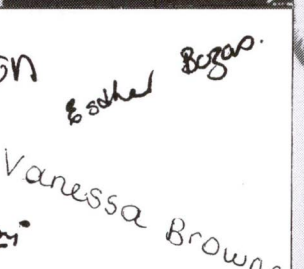 on
Esther Bozas.
Vanessa Browne